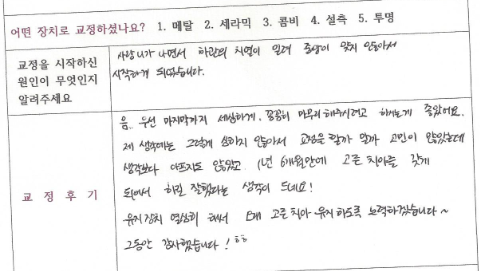 어떤 장치로 교정하셨나요? 1. 메탈 2. 세라믹 3. 콤비 4. 설측 5. 투명
교정을 시작하신
원인이 무엇인지
알려주세요
사랑니가 나면서 하관의 치열이 밀려 중앙이 맞지 않아서
시작하게 되었습니다.
교 정 후 기
음.. 우선 마지막까지 세심하게, 꼼꼼히 마무리 해주시려고 하시는게 좋았어요.
제 생각에는 그렇게 심하지 않아서 교정을 할까 말까 고민이 많았는데
생각보다 아프지도 않았고, 1년 6개월만에 고른 치아를 갖게
되어서 하길 잘했다는 생각이 드네요!
유지장치 열심히 해서 고른 치아 유지하도록 노력하겠습니다~
그동안 감사했습니다! ㅎㅎ